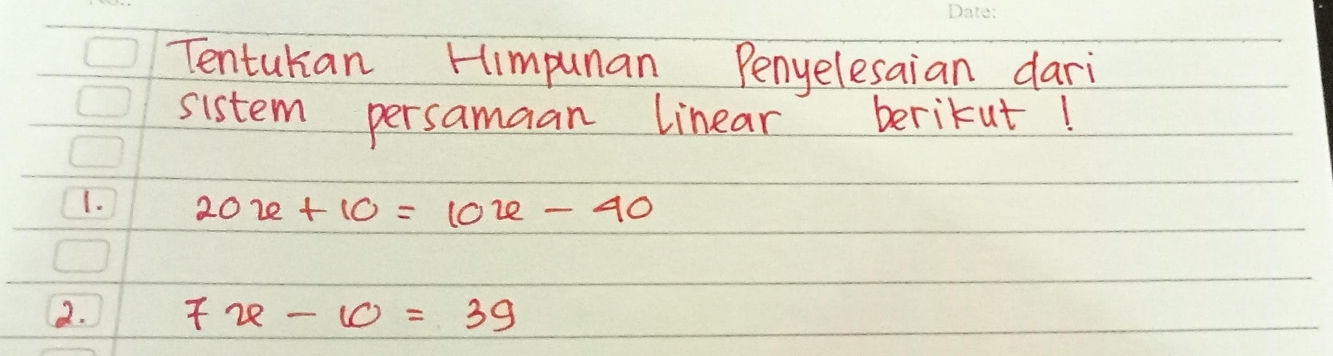 Date:
Tentukan Himpunan Penyelesaian dari
sistem persamaan linear berikut !
1. 20x + 10 = 10x - 40
2. 7x - 10 = 39